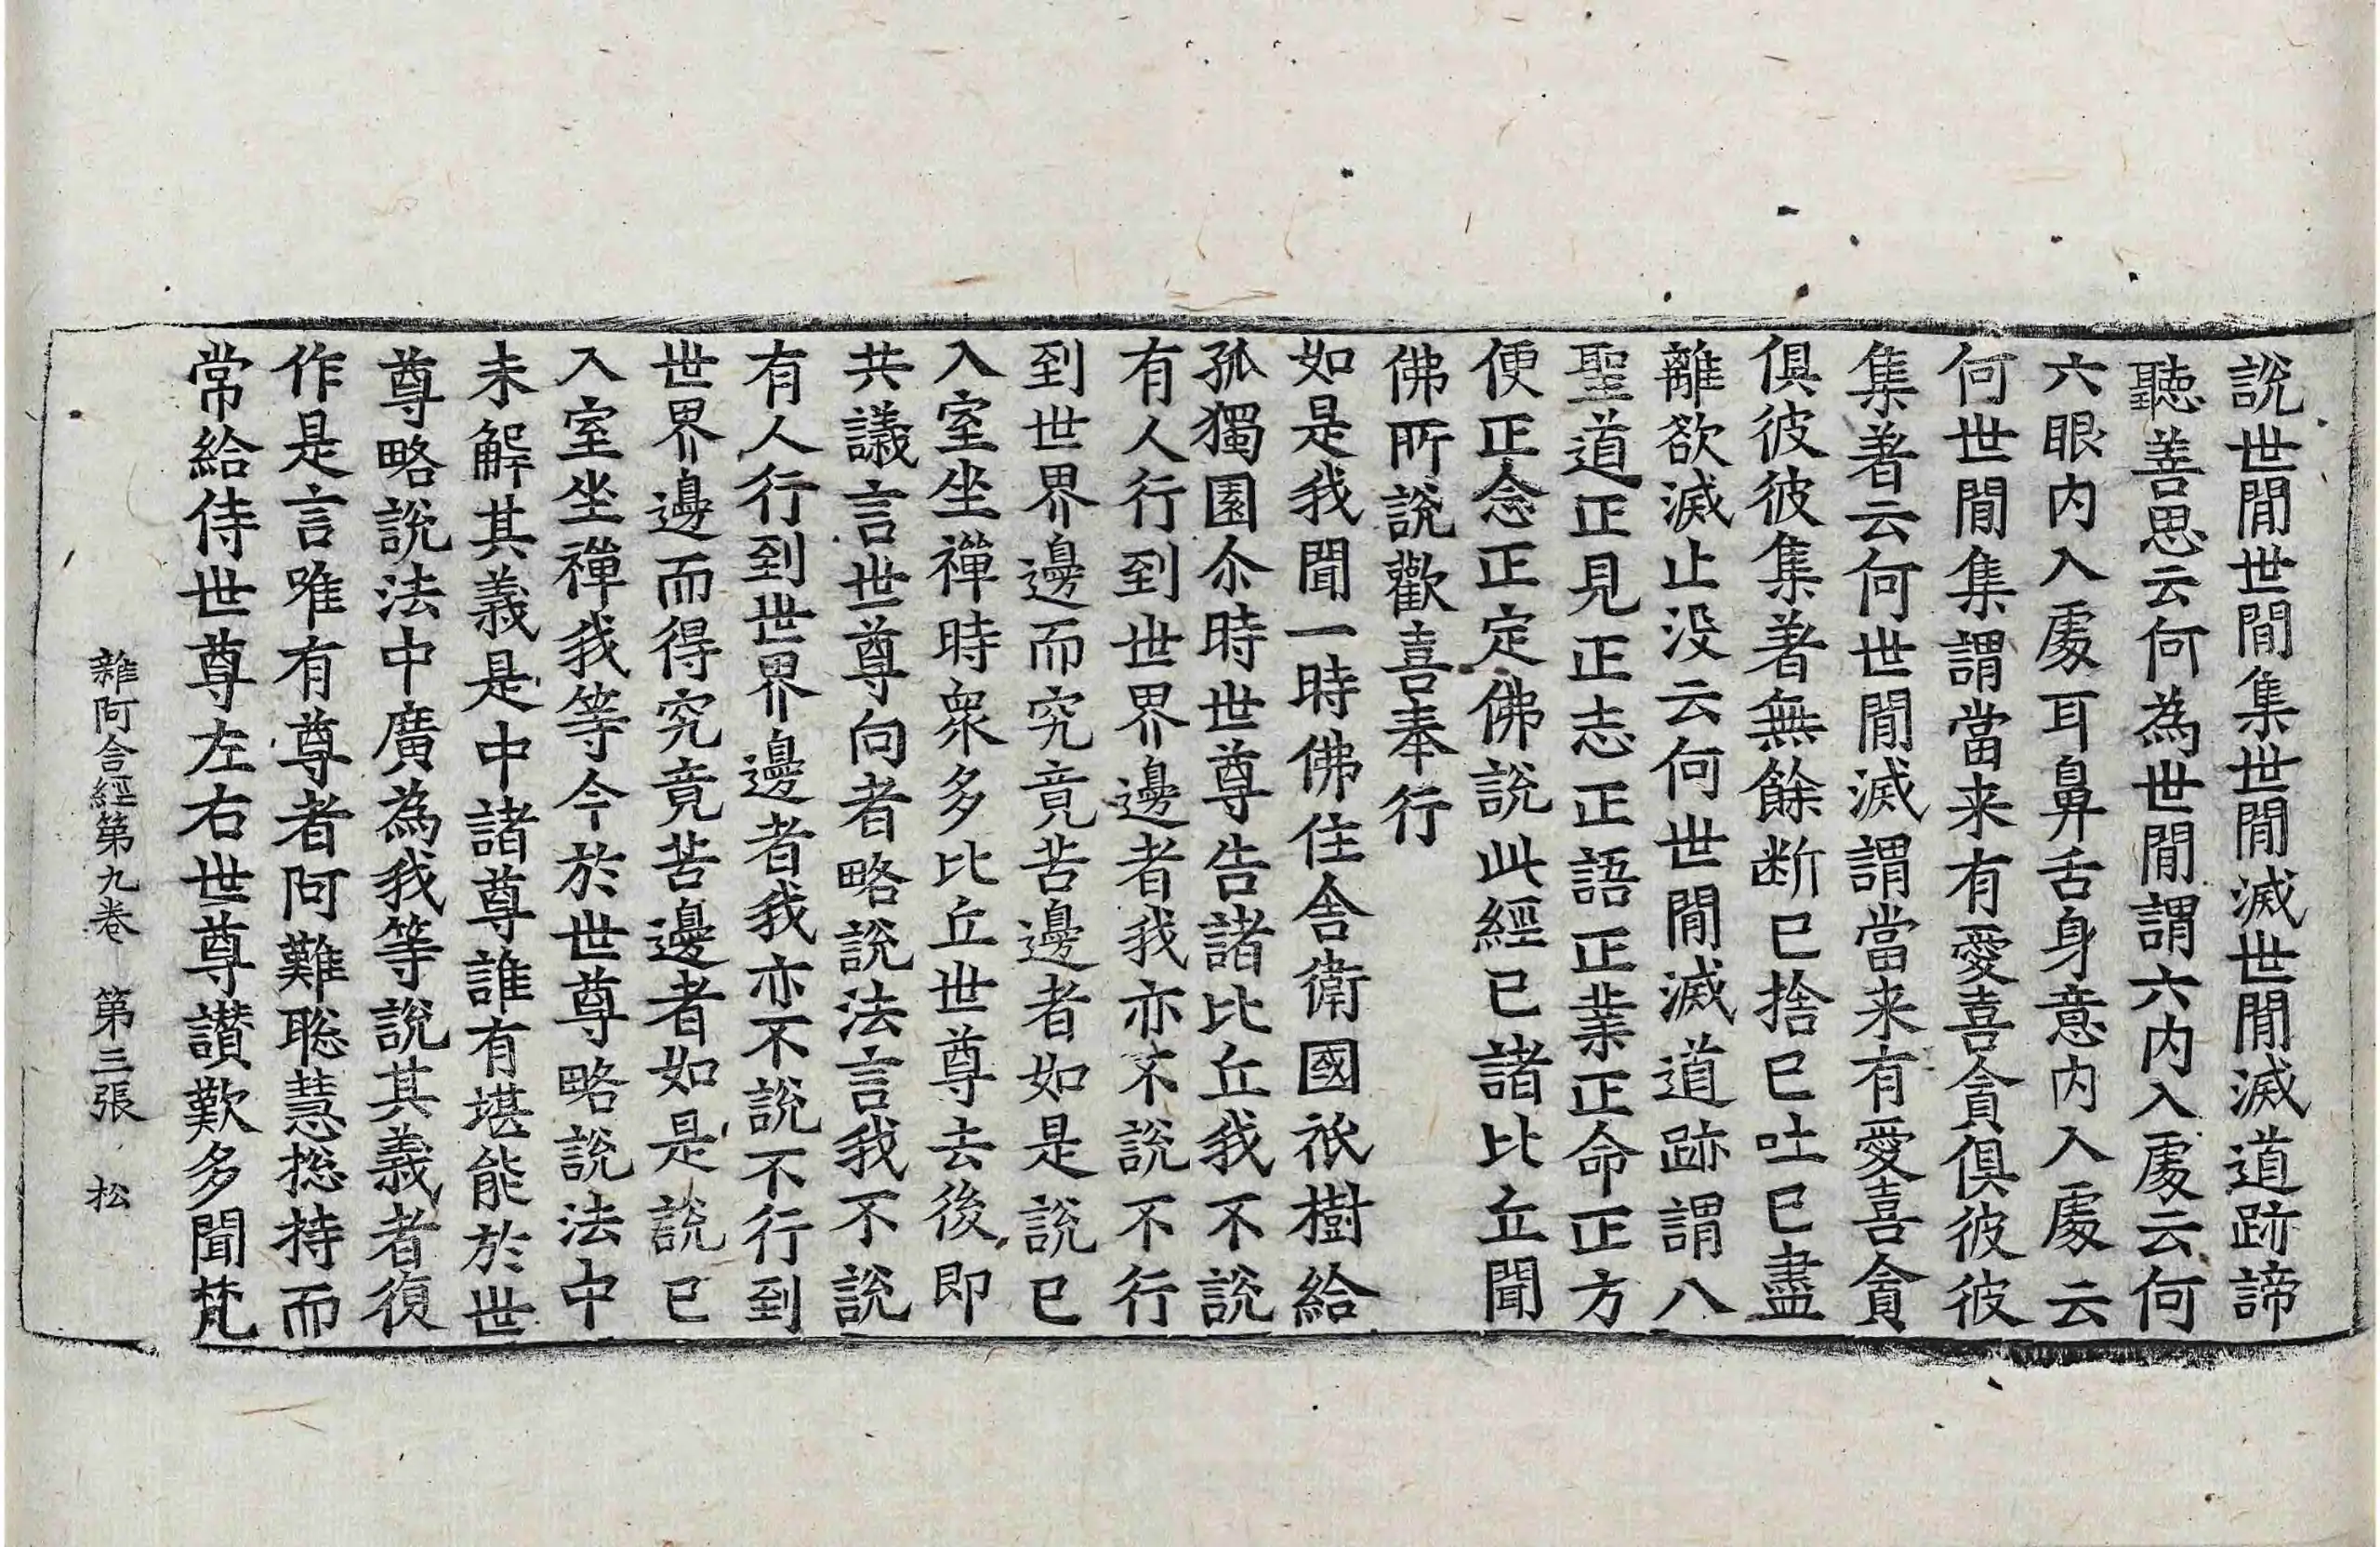 說世閒世閒集世閒滅世閒滅道跡諦
聽善思云何為世閒謂六內入處云何
六眼內入處耳鼻舌身意內入處云
何世閒集謂當来有愛喜貪俱彼彼
集著云何世閒滅謂當来有愛喜貪
俱彼彼集著無餘断已捨已吐已盡
離欲滅止没云何世閒滅道跡謂八
聖道正見正志正語正業正命正方
便正念正定佛說此經已諸比丘聞
佛所說歡喜奉行
如是我聞一時佛住舍衛國祇樹給
孤獨園尒時世尊告諸比丘我不說
有人行到世界邊者我亦不說不行
到世界邊而究竟苦邊者如是說已
入室坐禪時衆多比丘世尊去後即
共議言世尊向者略說法言我不說
有人行到世界邊者我亦不說不行到
世界邊而得究竟苦邊者如是說已
入室坐禪我等今於世尊略說法中
未解其義是中諸尊誰有堪能於世
尊略說法中廣為我等說其義者復
作是言唯有尊者阿難聡慧揔持而
常給侍世尊左右世尊讃歎多聞梵
雜阿含經第九卷 第三張 松